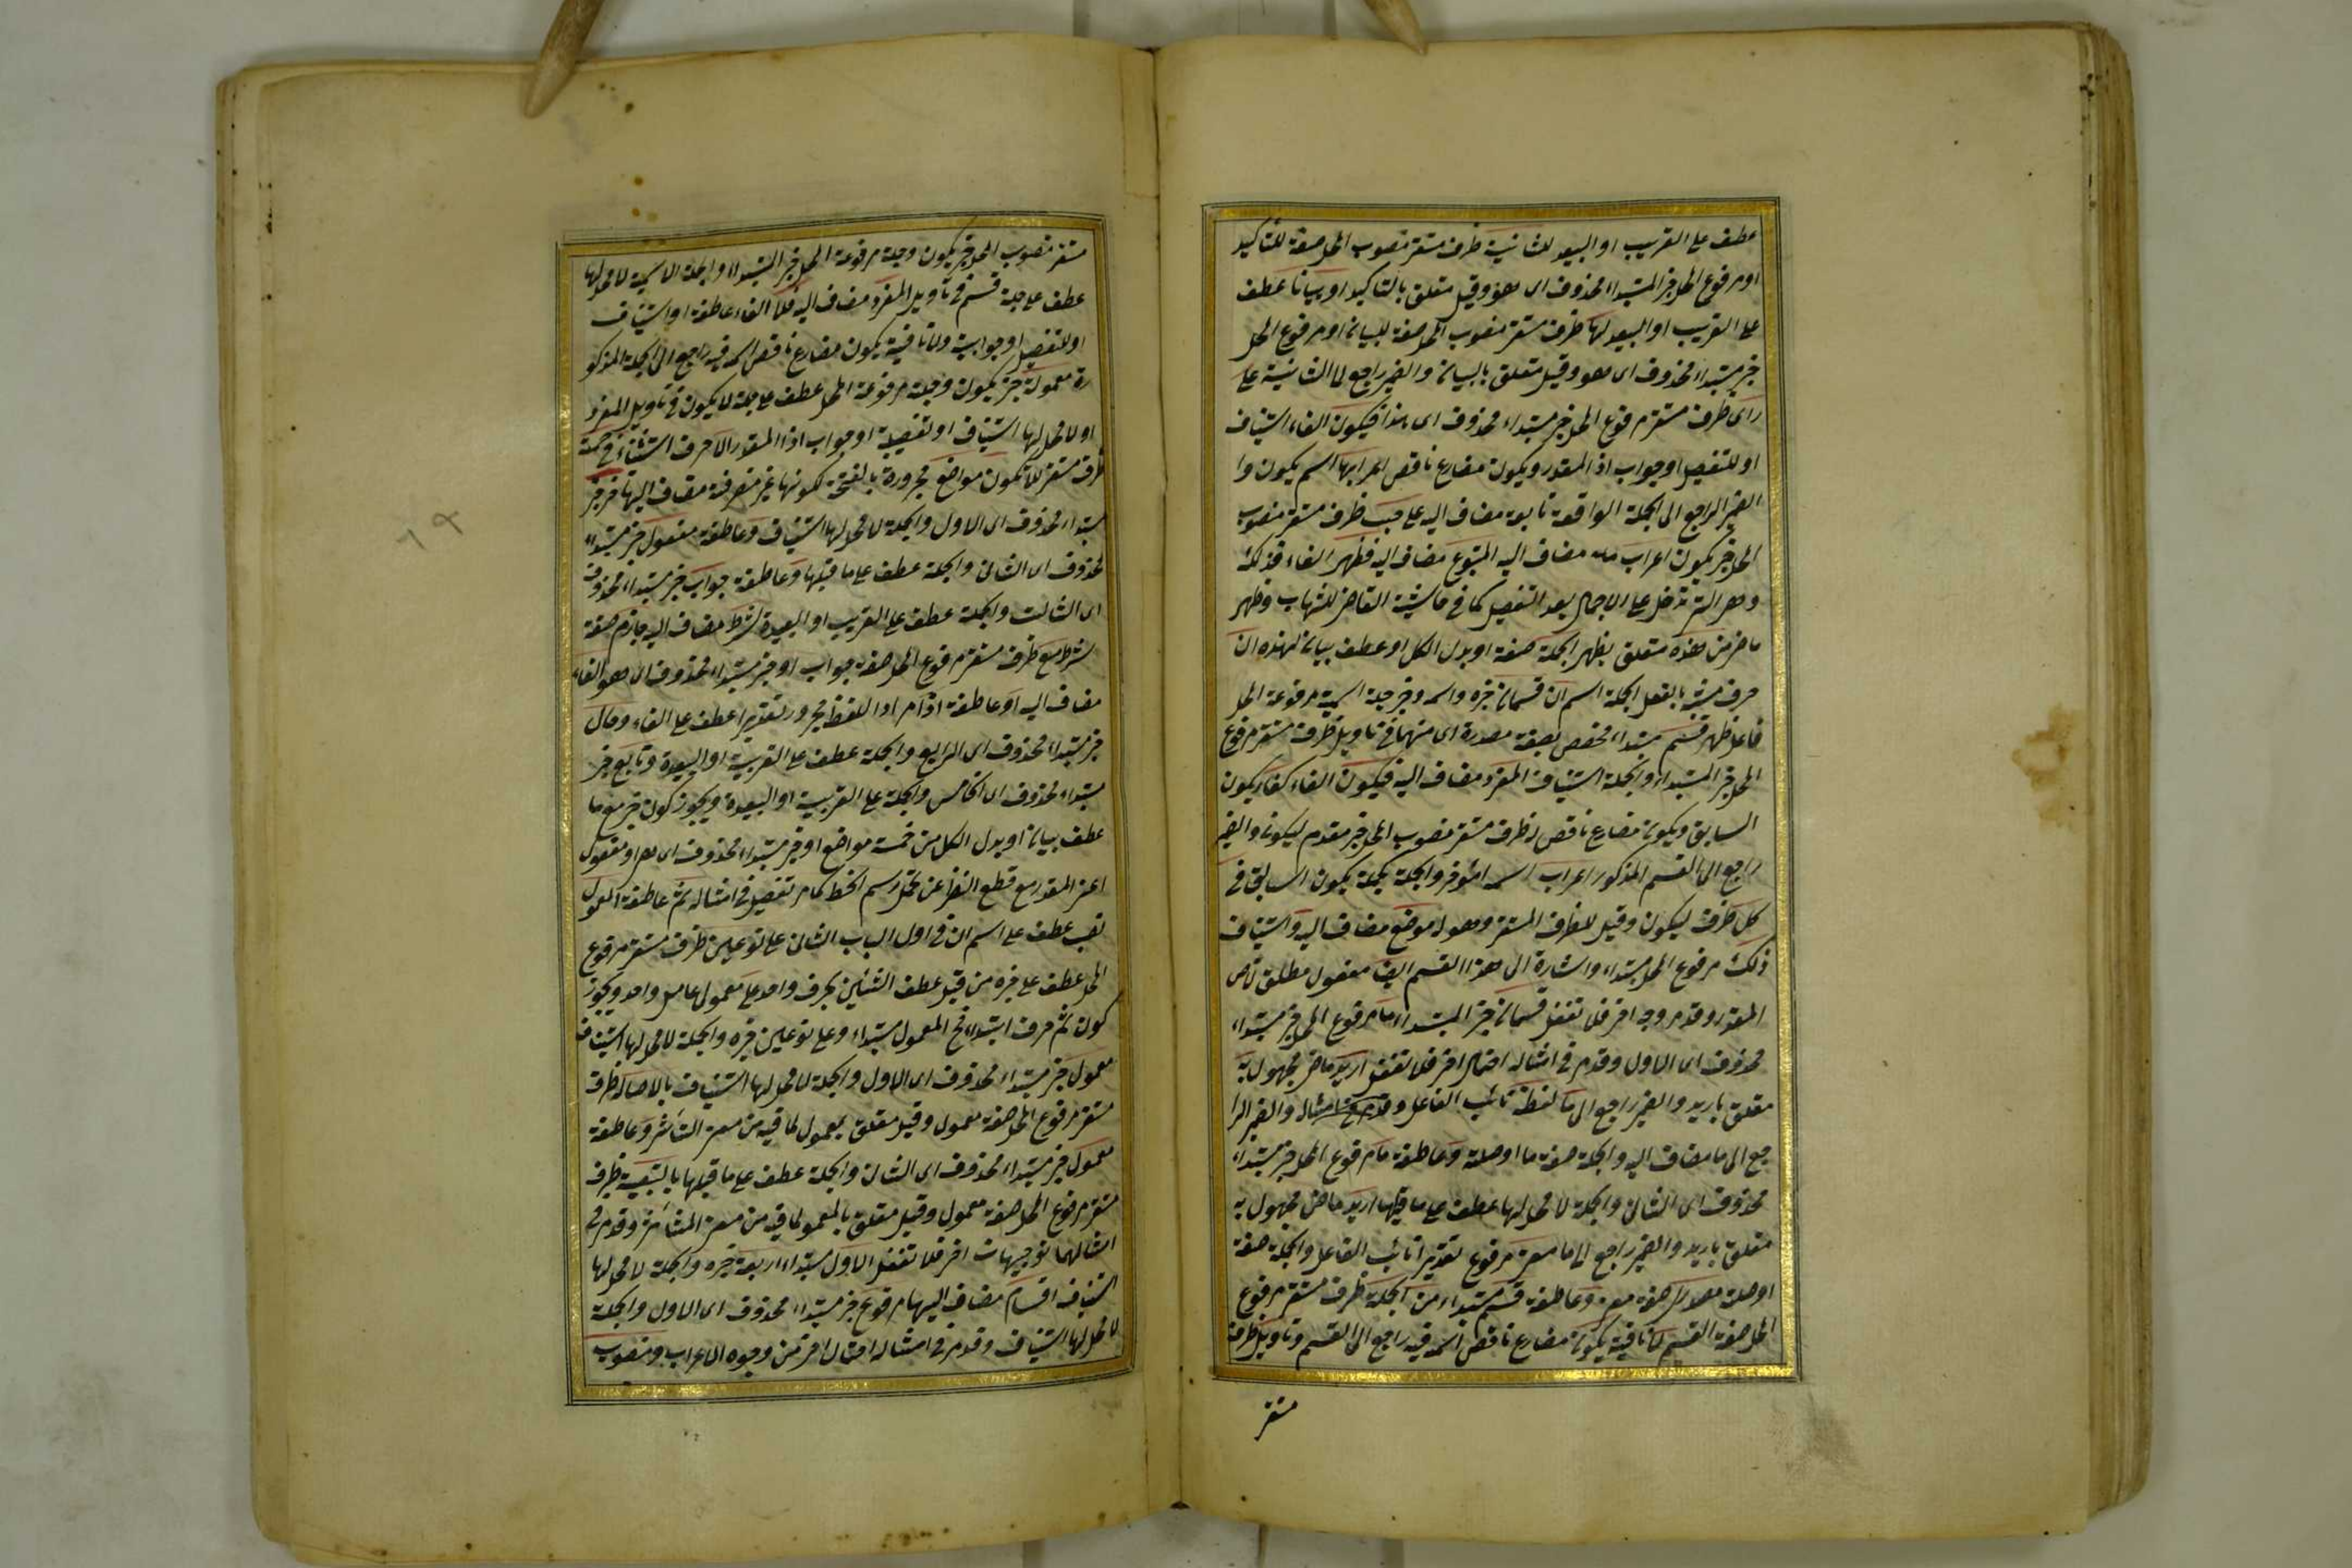 عطف على القريب او البعيد للثانية ظرف مستقر منصوب المحل صفة للتاكيد
او مرفوع المحل خبر المبتداء محذوف اى هو وقيل متعلق بالتاكيد او بيانا عطف
على القريب او البعيد لها ظرف مستقر منصوب المحل صفة للبيان او مرفوع المحل
خبر مبتداء محذوف اى هو وقيل متعلق بالبيان والضمير راجع لما الثانية على
راى ظرف مستقر مرفوع المحل خبر مبتداء محذوف اى هذا فيكون الفاء استيناف
او للتفصيل او جواب اذا المقدر ويكون مضارع ناقص اعرابها اسم يكون وا
الضمير الراجع الى الجملة الواقعة تابعة مضاف اليه على حسب ظرف مستقر منصوب
المحل خبر يكون اعراب مضاف اليه المتبوع مضاف اليه فظهر الفاء فذلكة
وهى التى تدخل على الاجمال بعد التفصيل كما فى حاشية القاضى للشهاب وظهر
ماض من هذه متعلق بظهر الجملة صفة او بدل الكل او عطف بيان لهذه ان
حرف مشبه بالفعل الجملة اسم ان قسمان خبره واسمه وخبره جملة اسمية مرفوعة المحل
فاعل ظهر قسم مبتداء مخصص بصفة مقدرة اى منهما فى تاويل ظرف مستقر مرفوع
المحل خبر المبتداء والجملة استيناف المفرد مضاف اليه فيكون الفاء كفاء يكون
السابق ويكون مضارع ناقص له ظرف مستقر منصوب المحل خبر مقدم ليكون والضمير
راجع الى القسم المذكور اعراب اسمه المؤخر والجملة كجملة يكون السابق فى
كل ظرف ليكون وقيل للظرف المستقر وهو له موضع مضاف اليه واستيناف
ذلك مرفوع المحل مبتداء واشارة الى هذا القسم ايضا مفعول مطلق لآض
المقدر وقد مر وجه اخر فلا تغفل قسمان خبر المبتداء ما مرفوع المحل خبر مبتداء
محذوف اى الاول وقد مر فى امثاله احتمال اخر فلا تغفل اريد ماض مجهول به
متعلق باريد والضمير راجع الى ما لفظه نائب الفاعل وقد مر امثاله والضمير الرا
جع الى ما مضاف اليه والجملة صفة ما او صلة وعاطفة ما مرفوع المحل خبر مبتداء
محذوف اى الثانى والجملة لا محل لها عطف على ما قبلها اريد ماض مجهول به
متعلق باريد والضمير راجع الى ما معنى مرفوع تقديرا نائب الفاعل والجملة صفة
او صلة مصدرى صفة معنى وعاطفة قسم مبتداء من الجملة ظرف مستقر مرفوع
المحل صفة القسم لا نافية يكون مضارع ناقص اسمه فيه راجع الى القسم وتاويل ظرف
مستقر
مستقر منصوب المحل خبر يكون وجملة مرفوعة المحل خبر المبتداء والجملة الاسمية لا محل لها
عطف على جملة قسم فى تاويل المفرد مضاف اليه فلا الفاء عاطفة او استيناف
او للتفصيل او جوابية ولا نافية يكون مضارع ناقص اسمه فيه راجع الى الجملة المذكو
رة معمولة خبر يكون وجملة مرفوعة المحل عطف على جملة لا يكون فى تاويل المفرد
او لا محل لها استيناف او تفصيلية او جواب اذا المقدر الا حرف استثناء فى خمسة
ظرف مستقر للا تكون مواضع مجرورة بالفتحة لكونها غير منصرفة مضاف اليها خبر خبر
مبتداء محذوف اى الاول والجملة لا محل لها استيناف وعاطفة مفعول خبر مبتداء
محذوف اى الثانى والجملة عطف على ما قبلها وعاطفة جواب خبر مبتداء محذوف
اى الثالث والجملة عطف على القريب او البعيدة لشرط مضاف اليه جازم صفة
شرط مع ظرف مستقر مرفوع المحل صفة جواب او خبر مبتداء محذوف اى هو الفاء
مضاف اليه او عاطفة اذا مراد اللفظ مجرور تقديرا عطف على الفاء وحال
خبر مبتداء محذوف اى الرابع والجملة عطف على القريبة او البعيدة وتابع خبر
مبتداء محذوف اى الخامس والجملة على القريبة او البعيدة ويجوز كون خبر مع ما
عطف بيان او بدل الكل من خمسة مواضع او خبر مبتداء محذوف اى هى او مفعول
اعنى المقدر مع قطع النظر عن تحمل رسم الخط كما مر تفصيل فى امثاله ثم عاطفة المعمول
نصب عطف على اسم ان فى اول الباب الثانى على نوعين ظرف مستقر مرفوع
المحل عطف على خبره من قبيل عطف الشيئين بحرف واحد على معمولى عامل واحد ويجوز
كون ثم حرف ابتداء فح المعمول مبتداء وعلى نوعين خبره والجملة لا محل لها استيناف
معمول خبر مبتداء محذوف اى الاول والجملة لا محل لها استيناف بالاصالة ظرف
مستقر مرفوع المحل صفة معمول وقيل متعلق بمعمول لما فيه من معنى التأثر وعاطفة
معمول خبر مبتداء محذوف اى الثانى والجملة عطف على ما قبلها بالتبعية ظرف
مستقر مرفوع المحل صفة معمول وقيل متعلق بالمعمول لما فيه من معنى المتأثر وقد مر فى
امثالهما توجيهات اخر فلا تغفل الاول مبتداء اربعة خبره والجملة لا محل لها
استيناف اقسام مضاف اليها مرفوع خبر مبتداء محذوف اى الاول والجملة
لا محل لها استيناف وقد مر فى امثاله احتمال اخر من وجوه الاعراب ومنصوب